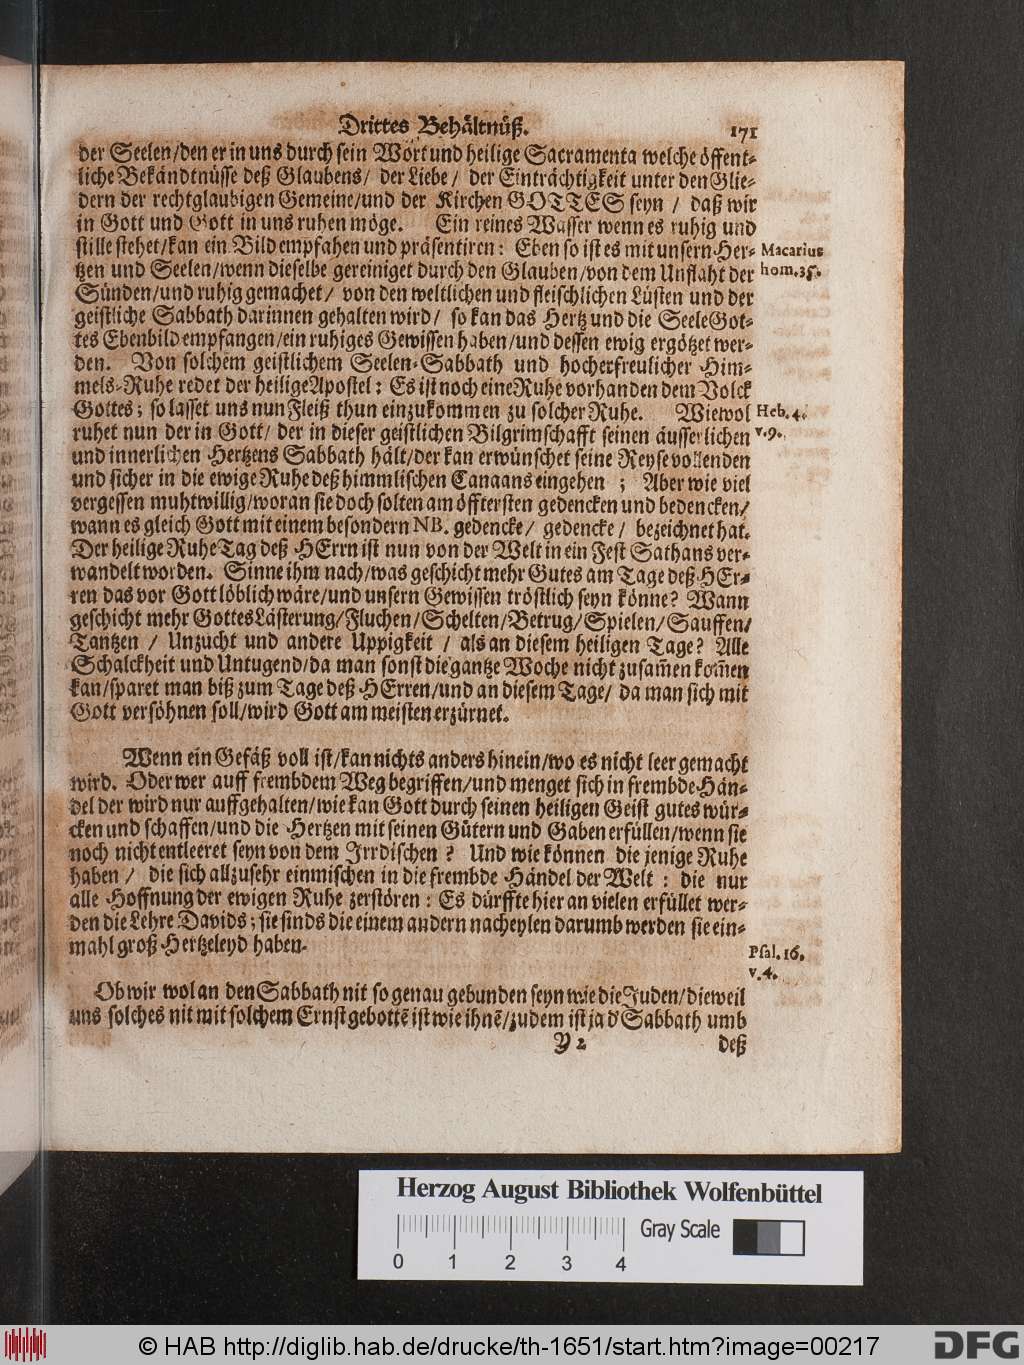 Drittes Behältnüß. 171
der Seelen/den er in uns durch sein Wort und heilige Sacramenta welche öffent-
liche Bekändtnüsse deß Glaubens/ der Liebe/ der Einträchtigkeit unter den Glie-
dern der rechtglaubigen Gemeine/und der Kirchen GOTTES seyn / daß wir
in Gott und Gott in uns ruhen möge. Ein reines Wasser wenn es ruhig und
stille stehet/kan ein Bild empfahen und präsentiren: Eben so ist es mit unsern Her-
tzen und Seelen/wenn dieselbe gereiniget durch den Glauben/von dem Unflaht der
Sünden/und ruhig gemachet/ von den weltlichen und fleischlichen Lüsten und der
geistliche Sabbath darinnen gehalten wird/ so kan das Hertz und die Seele Got-
tes Ebenbild empfangen/ein ruhiges Gewissen haben/und dessen ewig ergötzet wer-
den. Von solchem geistlichem Seelen-Sabbath und hocherfreulicher Him-
mels-Ruhe redet der heilige Apostel: Es ist noch eine Ruhe vorhanden dem Volck
Gottes; so lasset uns nun Fleiß thun einzukommen zu solcher Ruhe. Wiewol
ruhet nun der in Gott/ der in dieser geistlichen Bilgrimschafft seinen äusserlichen
und innerlichen Hertzens Sabbath hält/der kan erwünschet seine Reyse vollenden
und sicher in die ewige Ruhe deß himmlischen Canaans eingehen ; Aber wie viel
vergessen muhtwillig/woran sie doch solten am öfftersten gedencken und bedencken/
wann es gleich Gott mit einem besondern NB. gedencke/ gedencke/ bezeichnet hat.
Der heilige Ruhe Tag deß HErrn ist nun von der Welt in ein Fest Sathans ver-
wandelt worden. Sinne ihm nach/was geschicht mehr Gutes am Tage deß HEr-
ren das vor Gott löblich wäre/und unsern Gewissen tröstlich seyn könne? Wann
geschicht mehr Gottes Lästerung/Fluchen/Schelten/Betrug/Spielen/Sauffen/
Tantzen / Unzucht und andere Uppigkeit / als an diesem heiligen Tage? Alle
Schalckheit und Untugend/da man sonst die gantze Woche nicht zusam̄en kom̄en
kan/sparet man biß zum Tage deß HErren/und an diesem Tage/ da man sich mit
Gott versöhnen soll/wird Gott am meisten erzürnet.
Macarius
hom. 35.
Heb. 4.
v. 9.
Wenn ein Gefäß voll ist/kan nichts anders hinein/wo es nicht leer gemacht
wird. Oder wer auff frembdem Weg begriffen/und menget sich in frembde Hän-
del der wird nur auffgehalten/wie kan Gott durch seinen heiligen Geist gutes wür-
cken und schaffen/und die Hertzen mit seinen Gütern und Gaben erfüllen/wenn sie
noch nicht entleeret seyn von dem Irrdischen ? Und wie können die jenige Ruhe
haben / die sich allzusehr einmischen in die frembde Händel der Welt : die nur
alle Hoffnung der ewigen Ruhe zerstören : Es dürffte hier an vielen erfüllet wer-
den die Lehre Davids; sie sinds die einem andern nacheylen darumb werden sie ein-
mahl groß Hertzeleyd haben.
Psal. 16.
v. 4.
Ob wir wol an den Sabbath nit so genau gebunden seyn wie die Juden/dieweil
uns solches nit mit solchem Ernst gebottē ist wie ihnē/zudem ist ja d' Sabbath umb
Y 2 deß
Herzog August Bibliothek Wolfenbüttel
Gray Scale
0 1 2 3 4
© HAB http://diglib.hab.de/drucke/th-1651/start.htm?image=00217
DFG